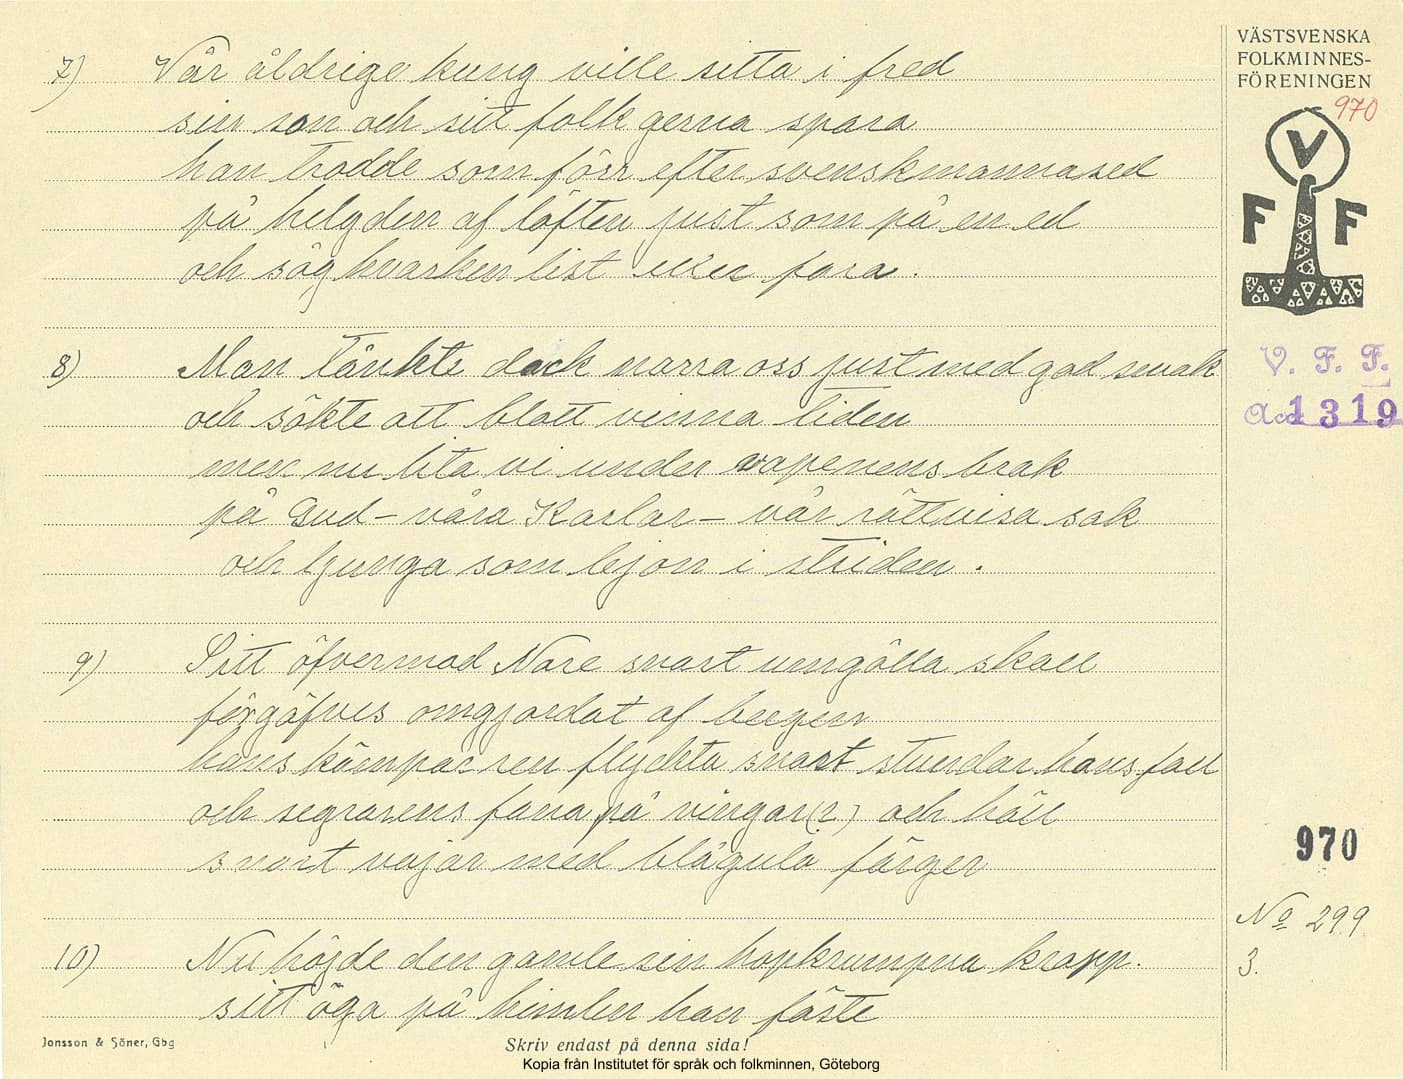 VÄSTSVENSKA
FOLKMINNES-
FÖRENINGEN
970
V
F F
V. F. F.
Acc 1319
7) Vår åldrige kung ville sitta i fred
sin son och sitt folk gerna spara
han trodde som förr efter svenskmannased
på helgden af löften just som på en ed
och såg hvarken list eller fara.
8) Man tänkte dock narra oss just med god smak
och sökte att blott vinna tiden
men nu lita vi under vapenens brak
på Gud - våra Karlar - vår rättvisa sak
och ljunga som lejon i striden.
9) Sitt öfvermod Nore snart umgälla skall
förgäfves omgjordat af bergen
hans kämpar ren flyckta snart stundar hans fall
och segrarens fana på vingar(?) och håll
snart vajar med blågula färger
10) Nu höjde den gamle sin hopkrumpna kropp.
sitt öga på himlen han fäste
970
No 299
3.
Jonsson & Söner, Gbg
Skriv endast på denna sida!
Kopia från Institutet för språk och folkminnen, Göteborg